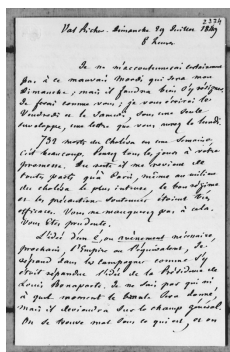 2374
Val Richer. Dimanche 29 Juillet 1849
8 heures
Je ne m'accoutumerai certainement
pas à ce mauvais mardi qui sera mon
Dimanche ; mais il faudra bien s'y résigner
Je ferai comme vous ; je vous écrirai le
Vendredi et le Samedi, sous une seule
enveloppe, une lettre que vous aurez le lundi.
739 morts du choléra en une semaine
c'est beaucoup. Pensez tous les jours à votre
promesse. Du reste il me revient de
toutes parts qu'à Paris, même au milieu
du choléra le plus intense, le bon régime
et les précautions soutenues étaient très
efficaces. Vous ne manquerez pas à cela.
Vous êtes prudente.
L'idée d'un évènement nécessaire,
prochain, l'Empire ou l'équivalent, se
répand dans les campagnes comme s'y
était répandue l'idée de la Présidence de
Louis Bonaparte. Je ne sais pas qui ni
à quel moment le branle sera donné,
mais il deviendra sur le champ général.
On se trouve mal dans ce qui est, et on